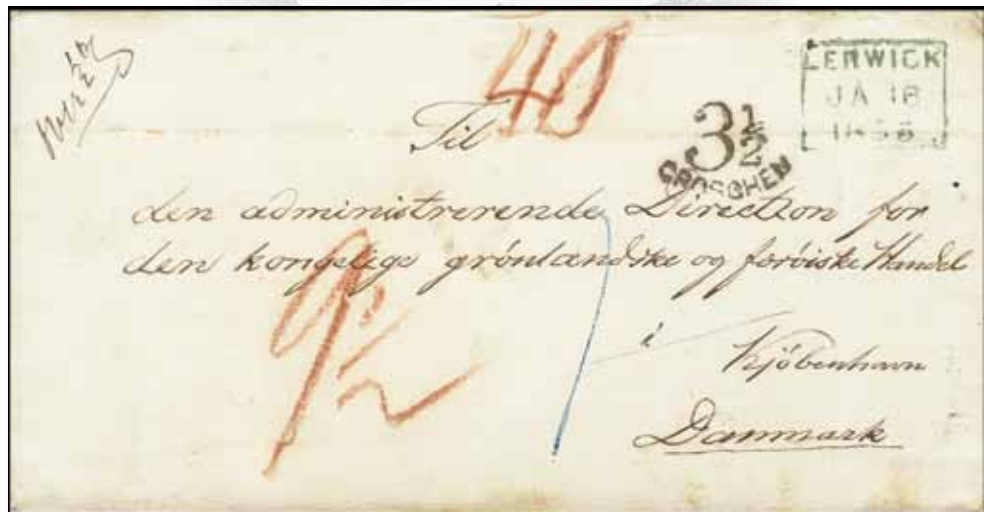 40
LERWICK
JA 18
1858
3½
GROSCHEN
Til
den administrerende Direction for
den kongelige grönlandske og færöiske Handel
i
Kjöbenhavn
Danmark
9½
7